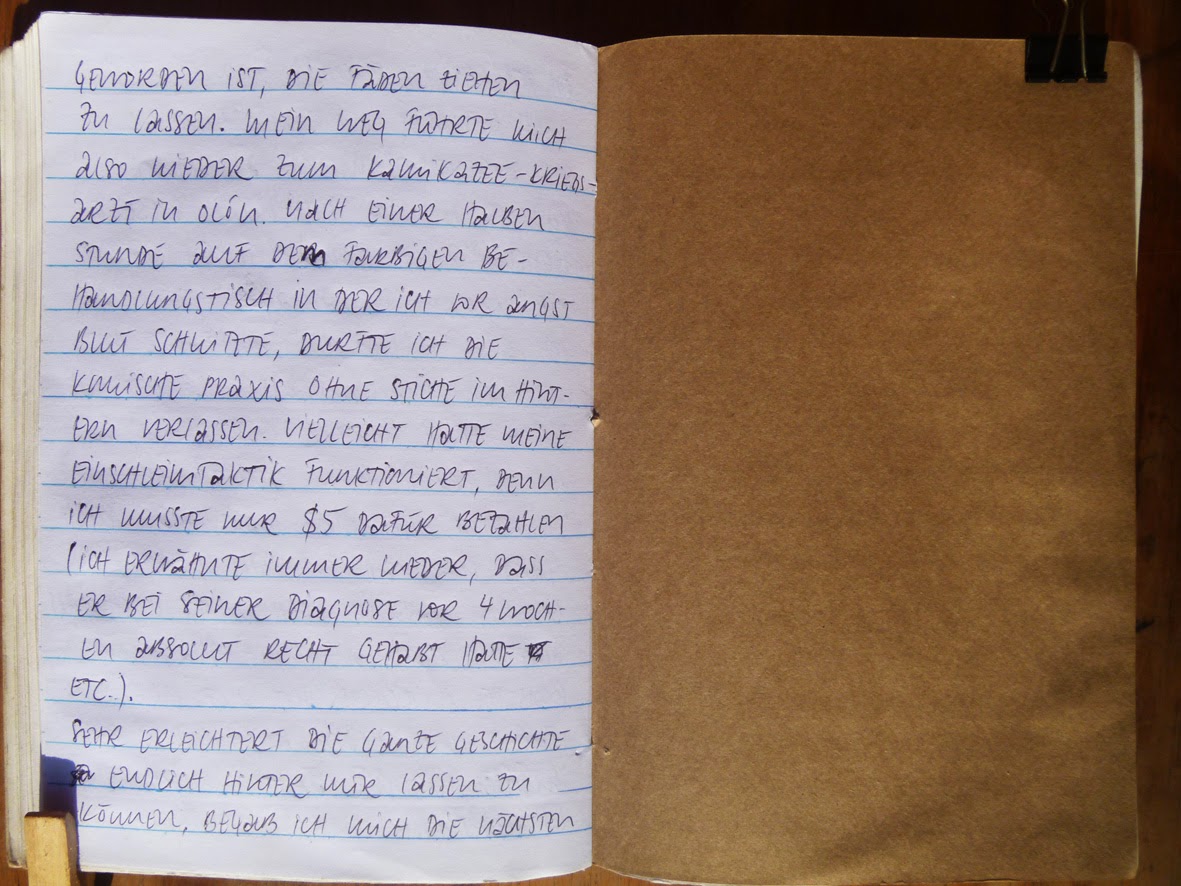 GEWORDEN IST, DIE FÄDEN ZIEHEN
ZU LASSEN. MEIN WEG FÜHRTE MICH
ALSO WIEDER ZUM KAMIKAZEE-KRIEGS-
ARZT IN OLÓN. NACH EINER HALBEN
STUNDE AUF DEM FARBIGEN BE-
HANDLUNGSTISCH IN DER ICH VOR ANGST
BLUT SCHWITZTE, DURFTE ICH DIE
KOMISCHE PRAXIS OHNE STICHE IM HINT-
ERN VERLASSEN. VIELLEICHT HATTE MEINE
EINSCHLEIMTAKTIK FUNKTIONIERT, DENN
ICH MUSSTE NUR $5 DAFÜR BEZAHLEN
(ICH ERWÄHNTE IMMER WIEDER, DASS
ER BEI SEINER DIAGNOSE VOR 4 WOCH-
EN ABSOLUT RECHT GEHABT HATTE
ETC.).
SEHR ERLEICHTERT DIE GANZE GESCHICHTE
ENDLICH HINTER MIR LASSEN ZU
KÖNNEN, BEGAB ICH MICH DIE NÄCHSTEN